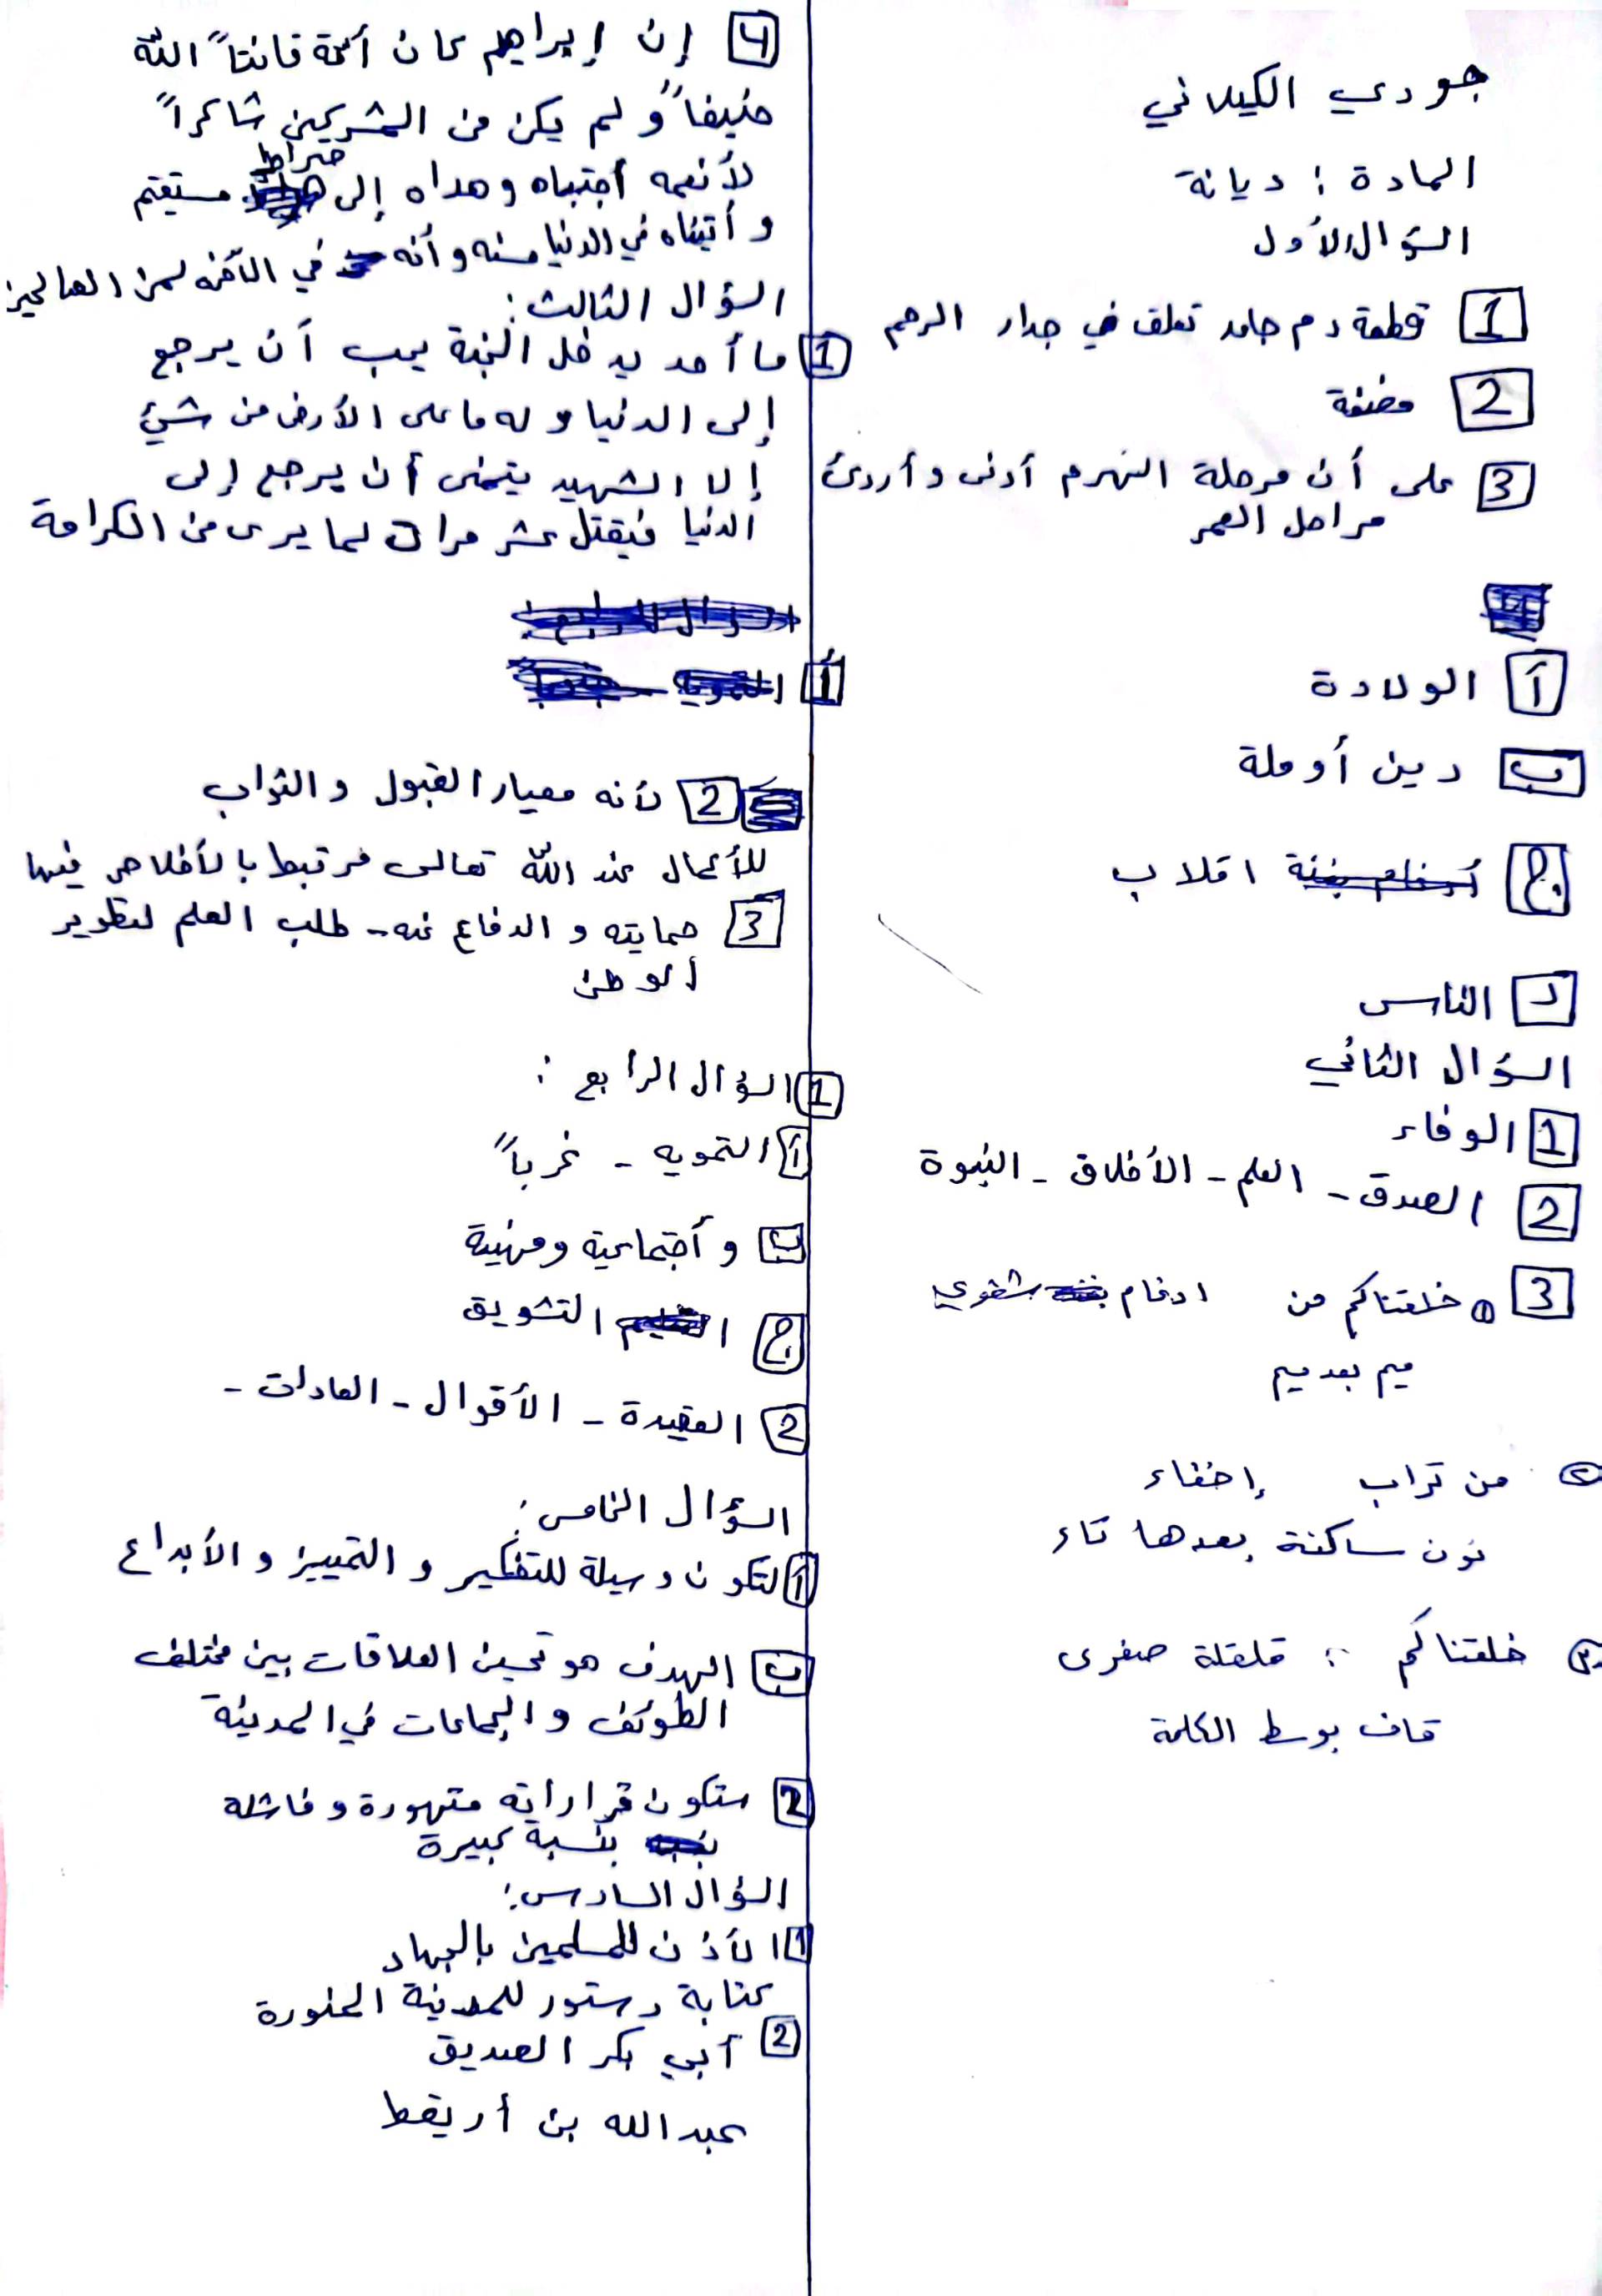 جودي الكيلاني
المادة : ديانة
السؤال الأول
1 قطعة دم جامد تعلق في جدار الرحم
2 مضغة
3 على أن مرحلة الهرم أدنى وأردئ
مراحل العمر
أ الولادة
ب دين أو ملة
ج اقلاب
د الناس
السؤال الثاني
1 الوفاء
2 الصدق - العلم - الأخلاق - النبوة
3 ① خلقناكم من ادغام شفوي
ميم بعد ميم
② من تراب إخفاء
نون ساكنة بعدها تاء
③ خلقناكم : قلقلة صغرى
قاف بوسط الكلمة
4 إن إبراهيم كان أمة قانتاً الله
حنيفاً و لم يكن من المشركين شاكراً
لأنعمه أجتباه وهداه إلى صراط مستقيم
و أتيناه في الدنيا حسنه و أنه في الآخره لمن الصالحين
السؤال الثالث :
1 ما أحد يدخل الجنة يحب أن يرجع
إلى الدنيا و له ما على الأرض من شيئ
إلا الشهيد يتمنى أن يرجع إلى
الدنيا فيقتل عشر مرات لما يرى من الكرامة
2 لأنه معيار القبول و الثواب
للأعمال عند الله تعالى مرتبط بالأخلاص فيها
3 حمايته و الدفاع عنه - طلب العلم لتطوير
الوطن
1 السؤال الرابع :
أ التمويه - غرباً
ب و أجتماعية ومهنية
ج التشويق
2 العقيدة - الأقوال - العادات -
السؤال الخامس :
أ لتكون وسيلة للتفكير و التمييز و الأبداع
ب الهدف هو تحسين العلاقات بين مختلف
الطوئف و الجماعات في المدينة
2 ستكون قراراته متهورة و فاشلة
بنسبة كبيرة
السؤال السادس :
1 الأذن للمسلمين بالجهاد
كتابة دستور للمدينة المنورة
2 أبي بكر الصديق
عبدالله بن أريقط